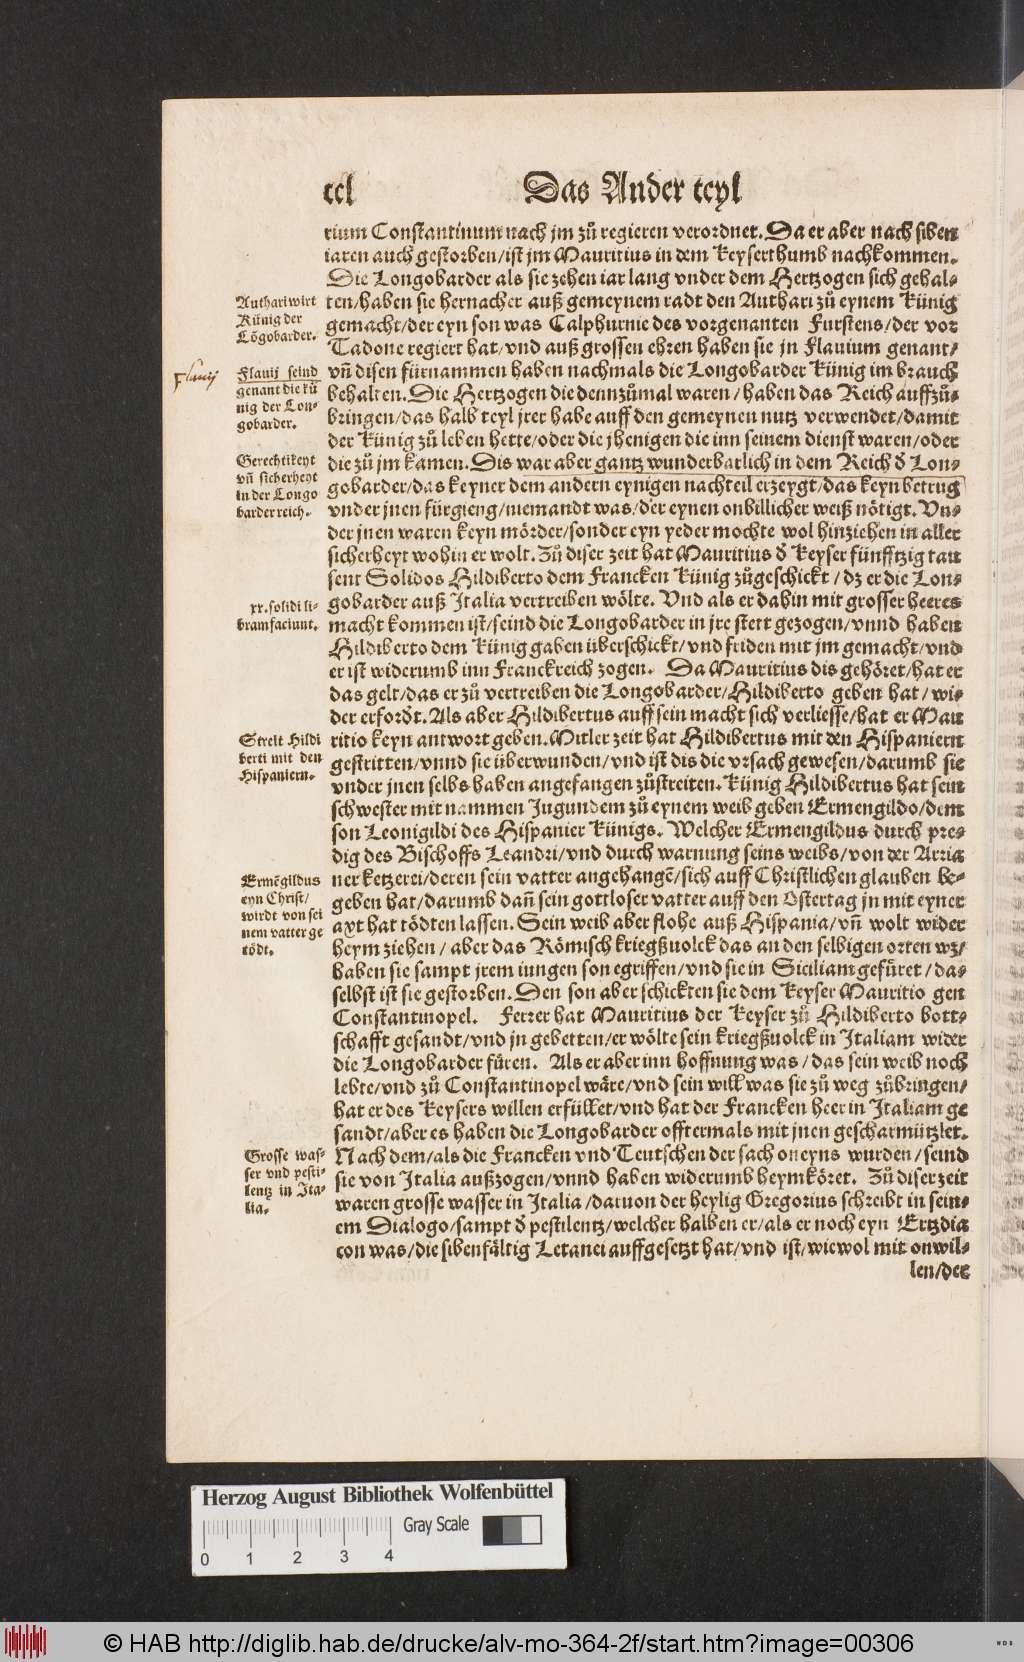 ccl
Das Ander teyl
rium Constantinum nach jm zů regieren verordnet. Da er aber nach siben
iaren auch gestorben/ist jm Mauritius in dem Keyserthumb nachkommen.
Die Longobarder als sie zehen iar lang vnder dem Hertzogen sich gehal-
ten/haben sie hernacher auß gemeynem radt den Authari zů eynem Künig
gemacht/der eyn son was Calphurnie des vorgenanten Furstens/der vor
Tadone regiert hat/vnd auß grossen ehren haben sie jn Flauium genant/
vñ disen fürnammen haben nachmals die Longobarder Künig im brauch
behalten. Die Hertzogen die dennzůmal waren/haben das Reich auffzů-
bringen/das halb teyl jrer habe auff den gemeynen nutz verwendet/damit
der Künig zů leben hette/oder die jhenigen die inn seinem dienst waren/oder
die zů jm kamen. Dis war aber gantz wunderbarlich in dem Reich d̕ Lon-
gobarder/das keyner dem andern eynigen nachteil erzeygt/das keyn betrug
vnder jnen fürgieng/niemandt was/der eynen onbillicher weiß nötigt. Vn-
der jnen waren keyn mörder/sonder eyn yeder mochte wol hinziehen in aller
sicherheyt wohin er wolt. Zů diser zeit hat Mauritius d̕ Keyser fünfftzig tau
sent Solidos Hildiberto dem Francken Künig zůgeschickt/dz er die Lon-
gobarder auß Italia vertreiben wölte. Vnd als er dahin mit grosser heeres
macht kommen ist/seind die Longobarder in jre stett gezogen/vnnd haben
Hildiberto dem Künig gaben überschickt/vnd friden mit jm gemacht/vnd
er ist widerumb inn Franckreich zogen. Da Mauritius dis gehöret/hat er
das gelt/das er zů vertreiben die Longobarder/Hildiberto geben hat/wi-
der erford̕t. Als aber Hildibertus auff sein macht sich verliesse/hat er Mau
ritio keyn antwort geben. Mitler zeit hat Hildibertus mit den Hispaniern
gestritten/vnnd sie überwunden/vnd ist dis die vrsach gewesen/darumb sie
vnder jnen selbs haben angefangen zůstreiten. Künig Hildibertus hat sein
schwester mit nammen Jugundem zů eynem weib geben Ermengildo/dem
son Leonigildi des Hispanier Künigs. Welcher Ermengildus durch pre-
dig des Bischoffs Leandri/vnd durch warnung seins weibs/von der Arria
ner ketzerei/deren sein vatter angehangẽ/sich auff Christlichen glauben be-
geben hat/darumb dañ sein gottloser vatter auff den Ostertag jn mit eyner
axt hat tödten lassen. Sein weib aber flohe auß Hispania/vñ wolt wider
heym ziehen/aber das Römisch kriegßuolck das an den selbigen orten wz/
haben sie sampt jrem iungen son egriffen/vnd sie in Siciliam gefüret/da-
selbst ist sie gestorben. Den son aber schickten sie dem Keyser Mauritio gen
Constantinopel. Ferrer hat Mauritius der Keyser zů Hildiberto bott-
schafft gesandt/vnd jn gebetten/er wölte sein kriegßuolck in Italiam wider
die Longobarder füren. Als er aber inn hoffnung was/das sein weib noch
lebte/vnd zů Constantinopel wäre/vnd sein will was sie zů weg zůbringen/
hat er des Keysers willen erfüllet/vnd hat der Francken heer in Italiam ge
sandt/aber es haben die Longobarder offtermals mit jnen gescharmützlet.
Nach dem/als die Francken vnd Teutschen der sach oneyns wurden/seind
sie von Italia außzogen/vnnd haben widerumb heymköret. Zů diser zeit
waren grosse wasser in Italia/daruon der heylig Gregorius schreibt in sein-
em Dialogo/sampt d̕ pestilentz/welcher halben er/als er noch eyn Ertzdia
con was/die sibenfältig Letanei auffgesetzt hat/vnd ist/wiewol mit onwil-
len/der
Authari wirt
Künig der
Lõgobarder.
Flauij
Flauij seind
genant die kü
nig der Lon-
gobarder.
Gerechtikeyt
vñ sicherheyt
in der Longo
barder reich.
xx. solidi li-
bram faciunt.
Streit Hildi
berti mit den
Hispaniern.
Ermẽgildus
eyn Christ/
wirdt von sei
nem vatter ge
tödt.
Grosse was-
ser vnd pesti-
lentz in Ita-
lia.
Herzog August Bibliothek Wolfenbüttel
Gray Scale
0 1 2 3 4
© HAB http://diglib.hab.de/drucke/alv-mo-364-2f/start.htm?image=00306